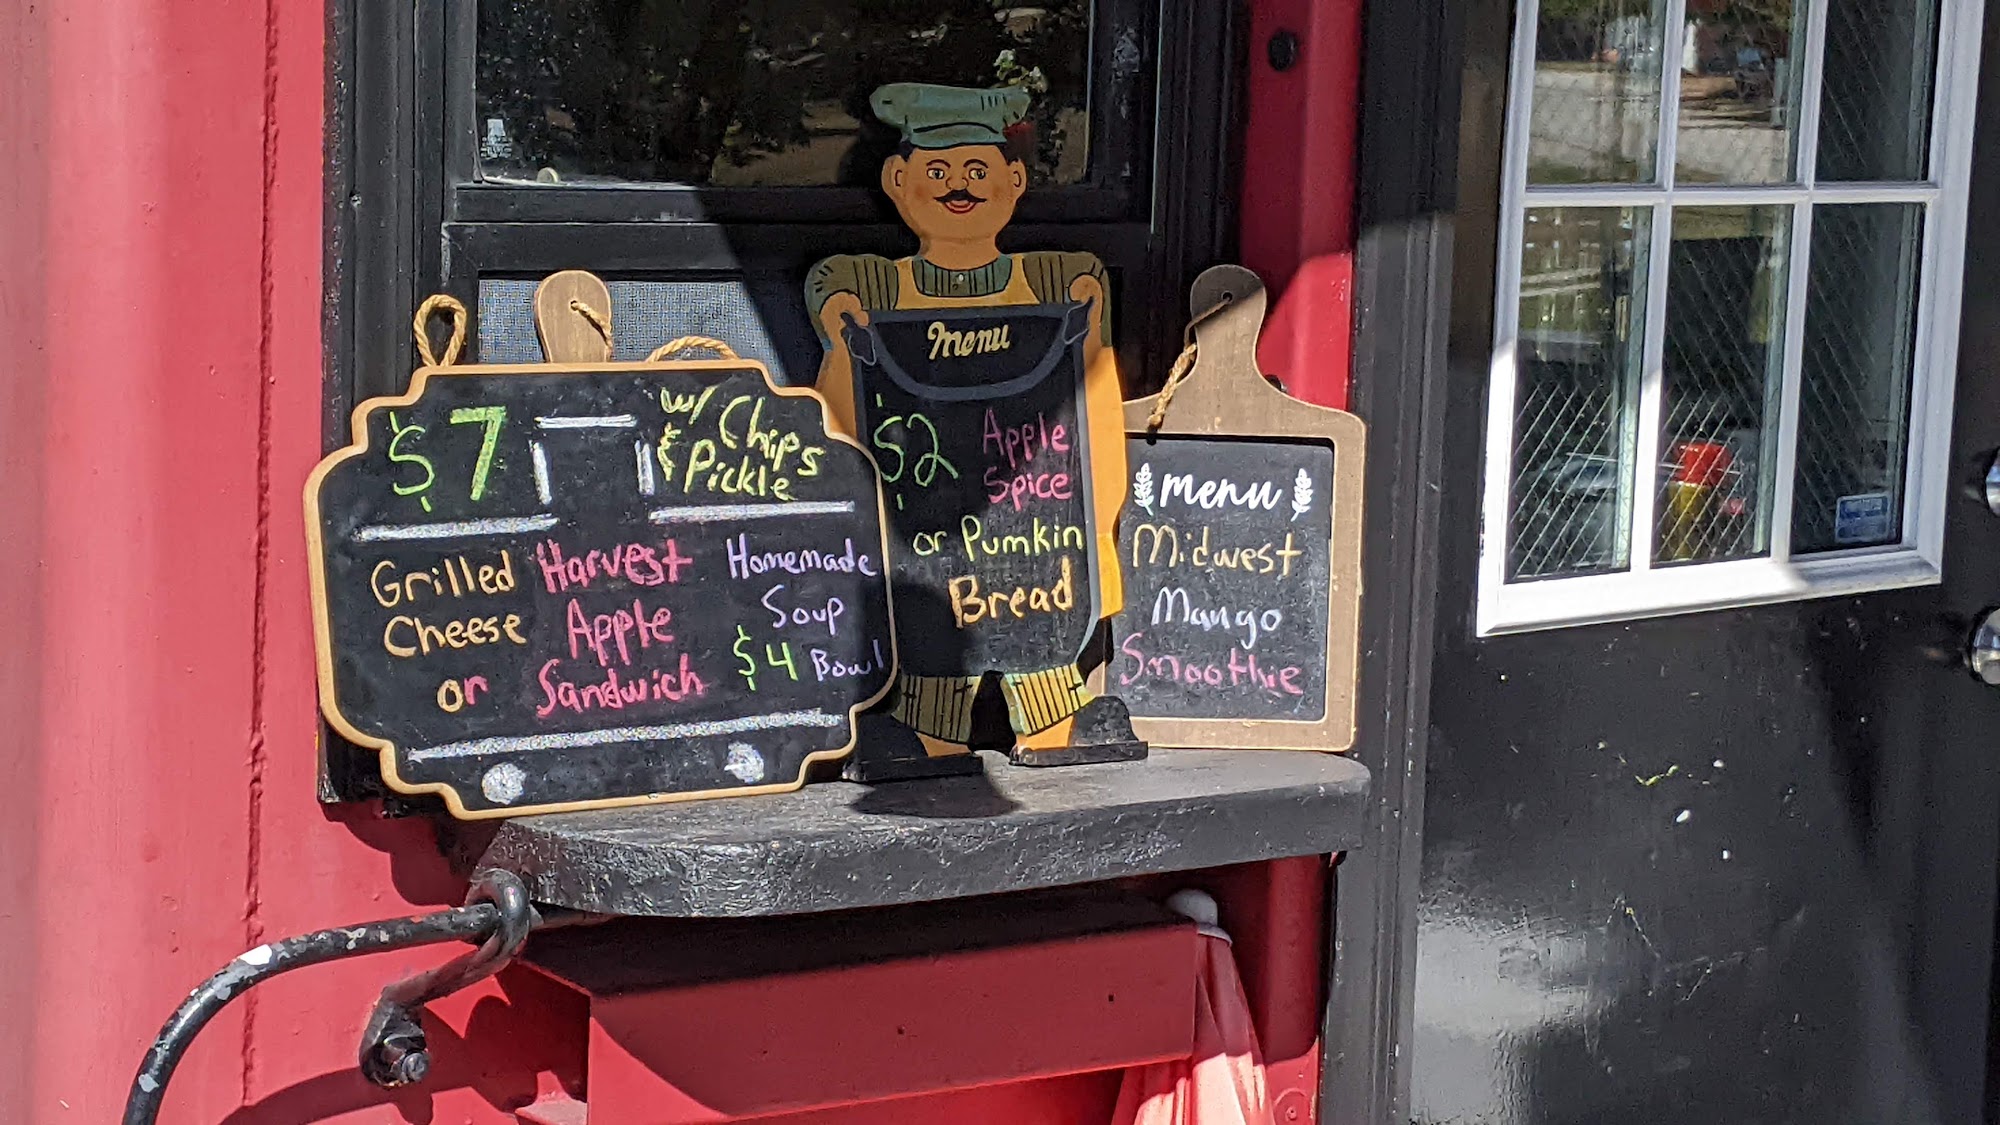 $7
w/ Chips
& Pickle
Grilled
Cheese
or
Harvest
Apple
Sandwich
Homemade
Soup
$4 Bowl
Menu
$2 Apple
Spice
or Pumkin
Bread
menu
Midwest
Mango
Smoothie